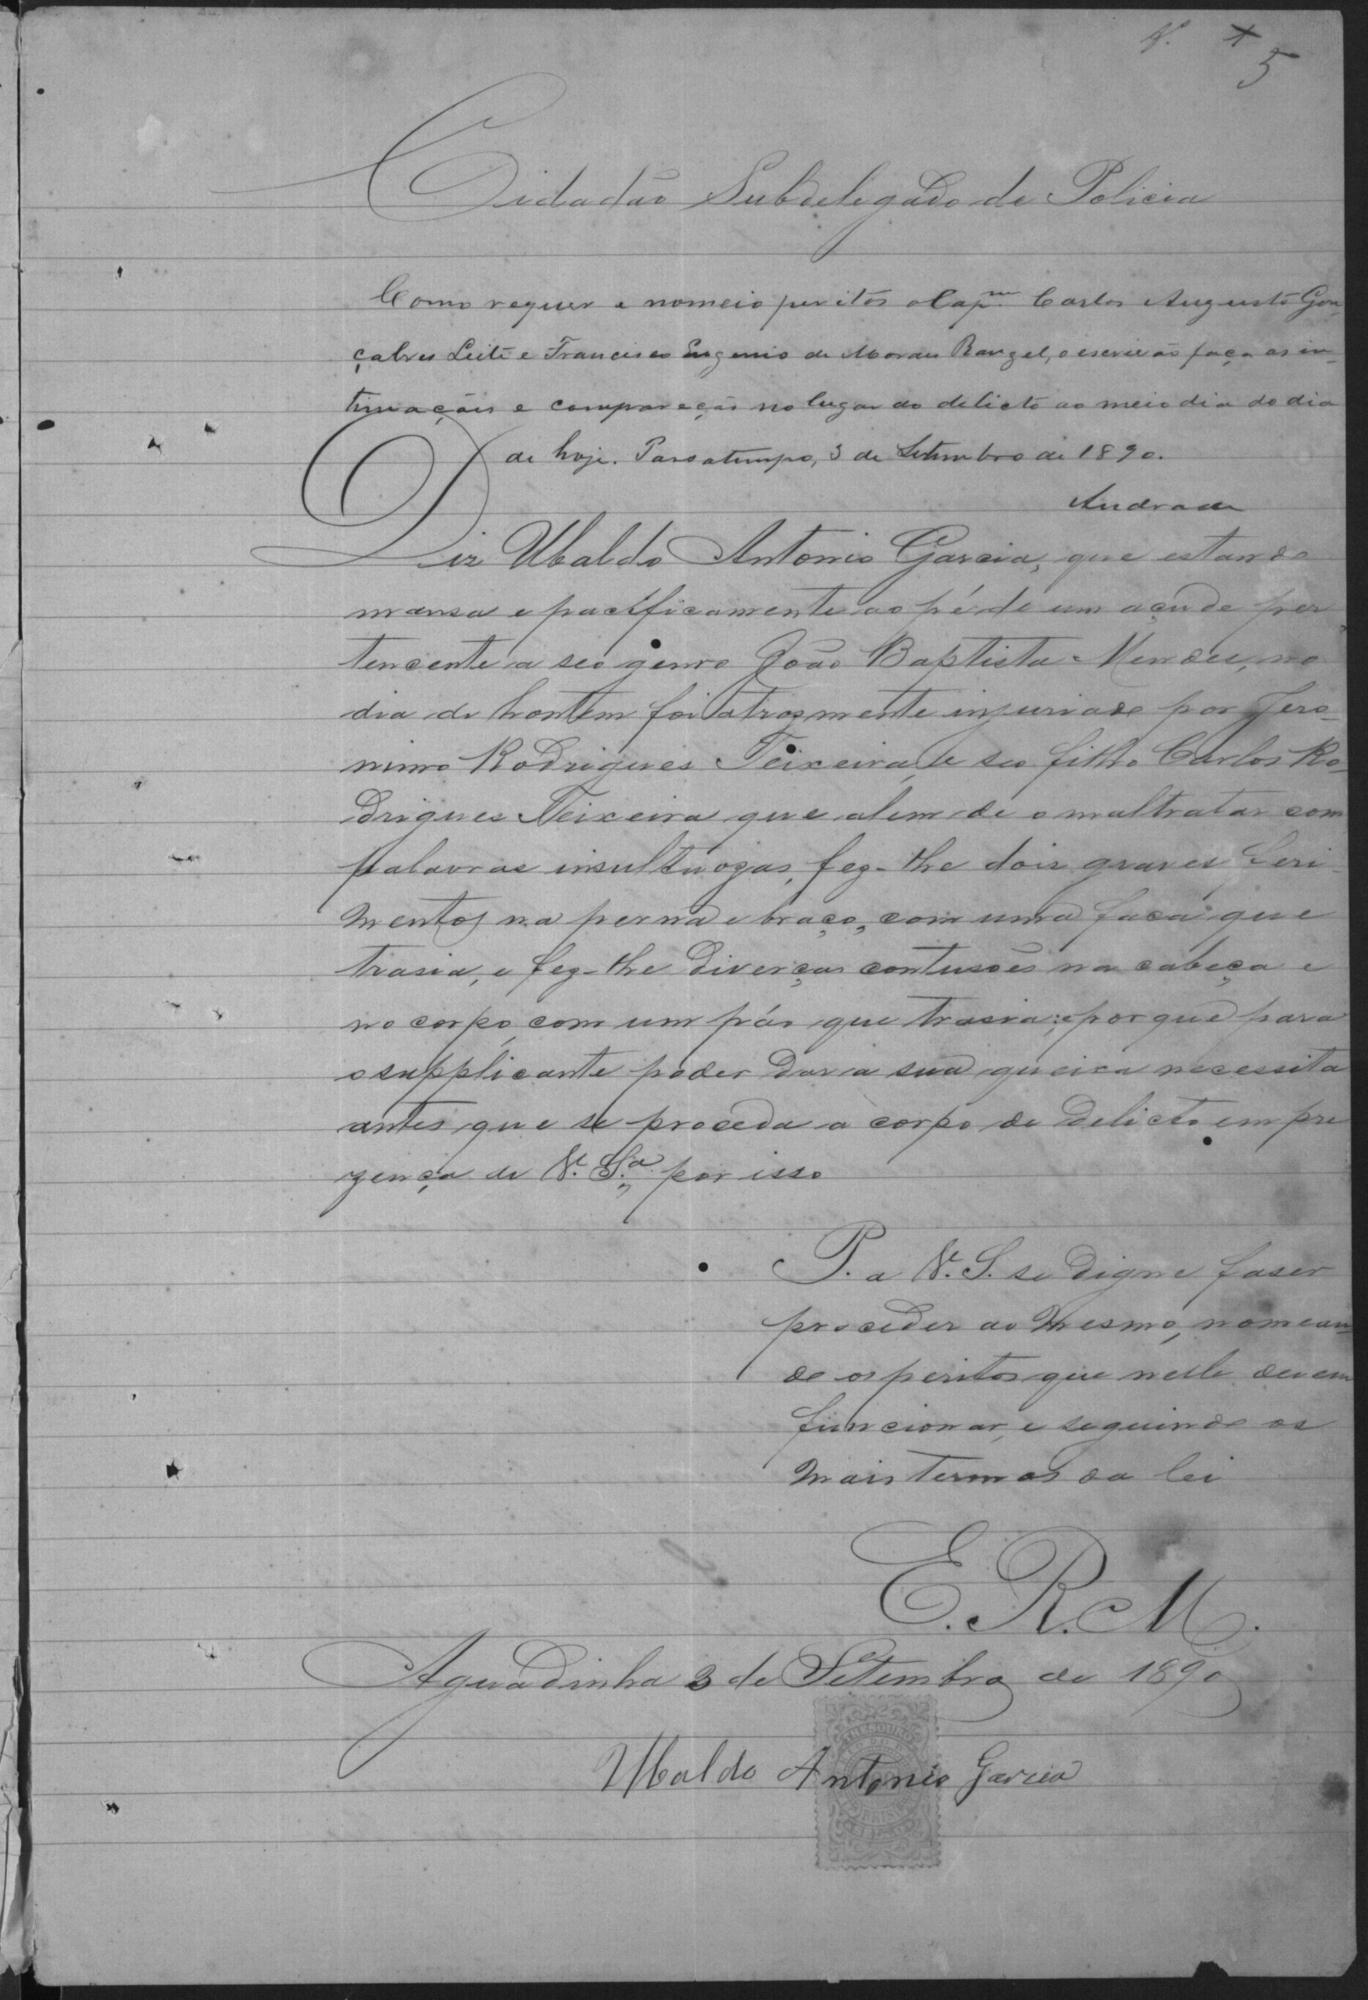 N. 5
Cidadão Subdelegado de Policia
Como requer e nomeio peritos o Capm. Carlos Augusto Gon
çalves Leite e Francisco Eugenio de Moraes Rangel, o escrivão faça as in-
timações e compareção no lugar do delicto ao meio dia do dia
de hoje. Passatempo, 3 de Setembro de 1890.
Andrade
Diz Ubaldo Antonio Garcia, que estando
mansa e pacificamente ao pé de um açude per
tencente a seo genro João Baptista Mendes, no
dia de hontem foi atrosmente injuriado por Jero-
nimo Rodrigues Teixeira, e seo filho Carlos Ro-
drigues Teixeira que alem de o maltratar com
palavras insultuozas, fez-lhe dois graves feri-
mentos na perna e braço, com uma faca que
trasia, e fez-lhe diverças contusões na cabeça e
no corpo, com um páo que trasia; e porque para
o supplicante poder dar a sua queixa necessita
antes que se proceda a corpo de delicto em pre
zença de V. Sa. por isso
P. a V. S. se digne faser
proceder ao mesmo, nomean-
do os peritos que nelle devem
funcionar, e seguindo os
mais termos da lei
E. R. M.
Aguadinha 3 de Setembro de 1890
Ubaldo Antonio Garcia
THESOURO